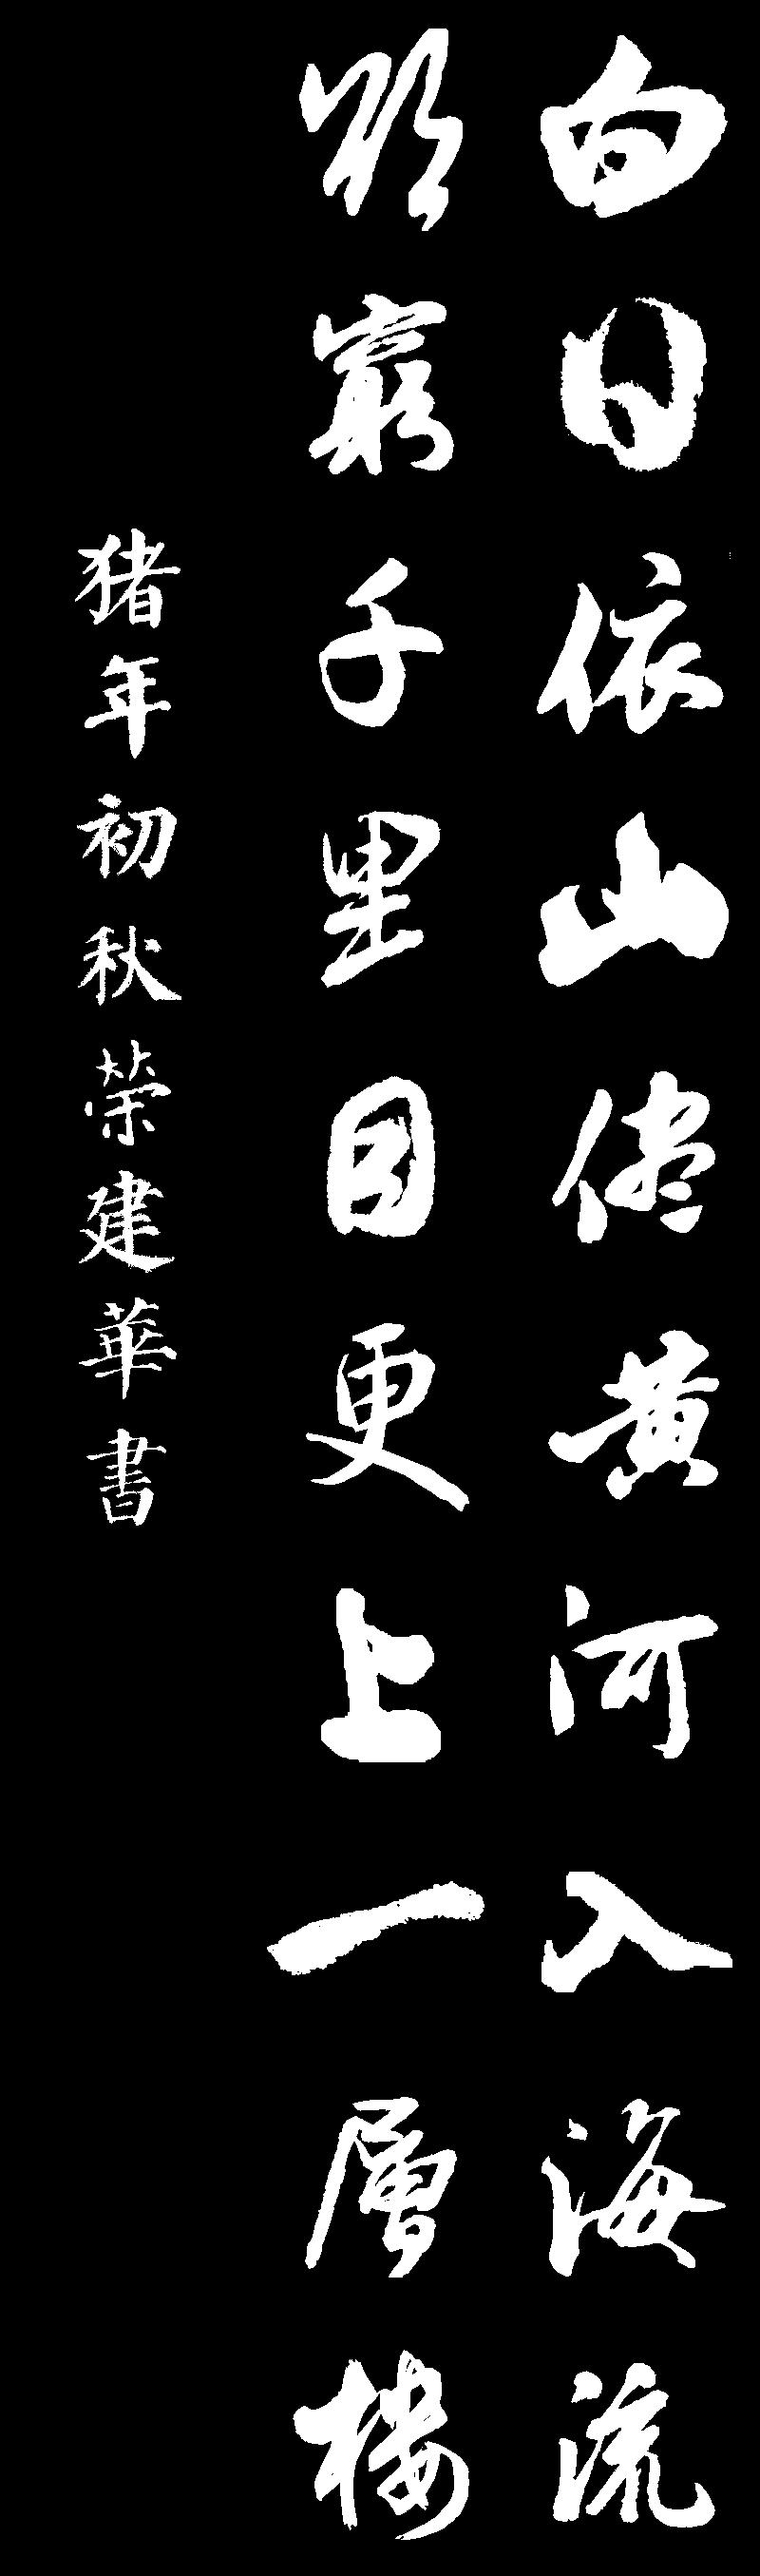 白日依山儘黄河入海流
欲窮千里目更上一層樓
猪年初秋榮建華書